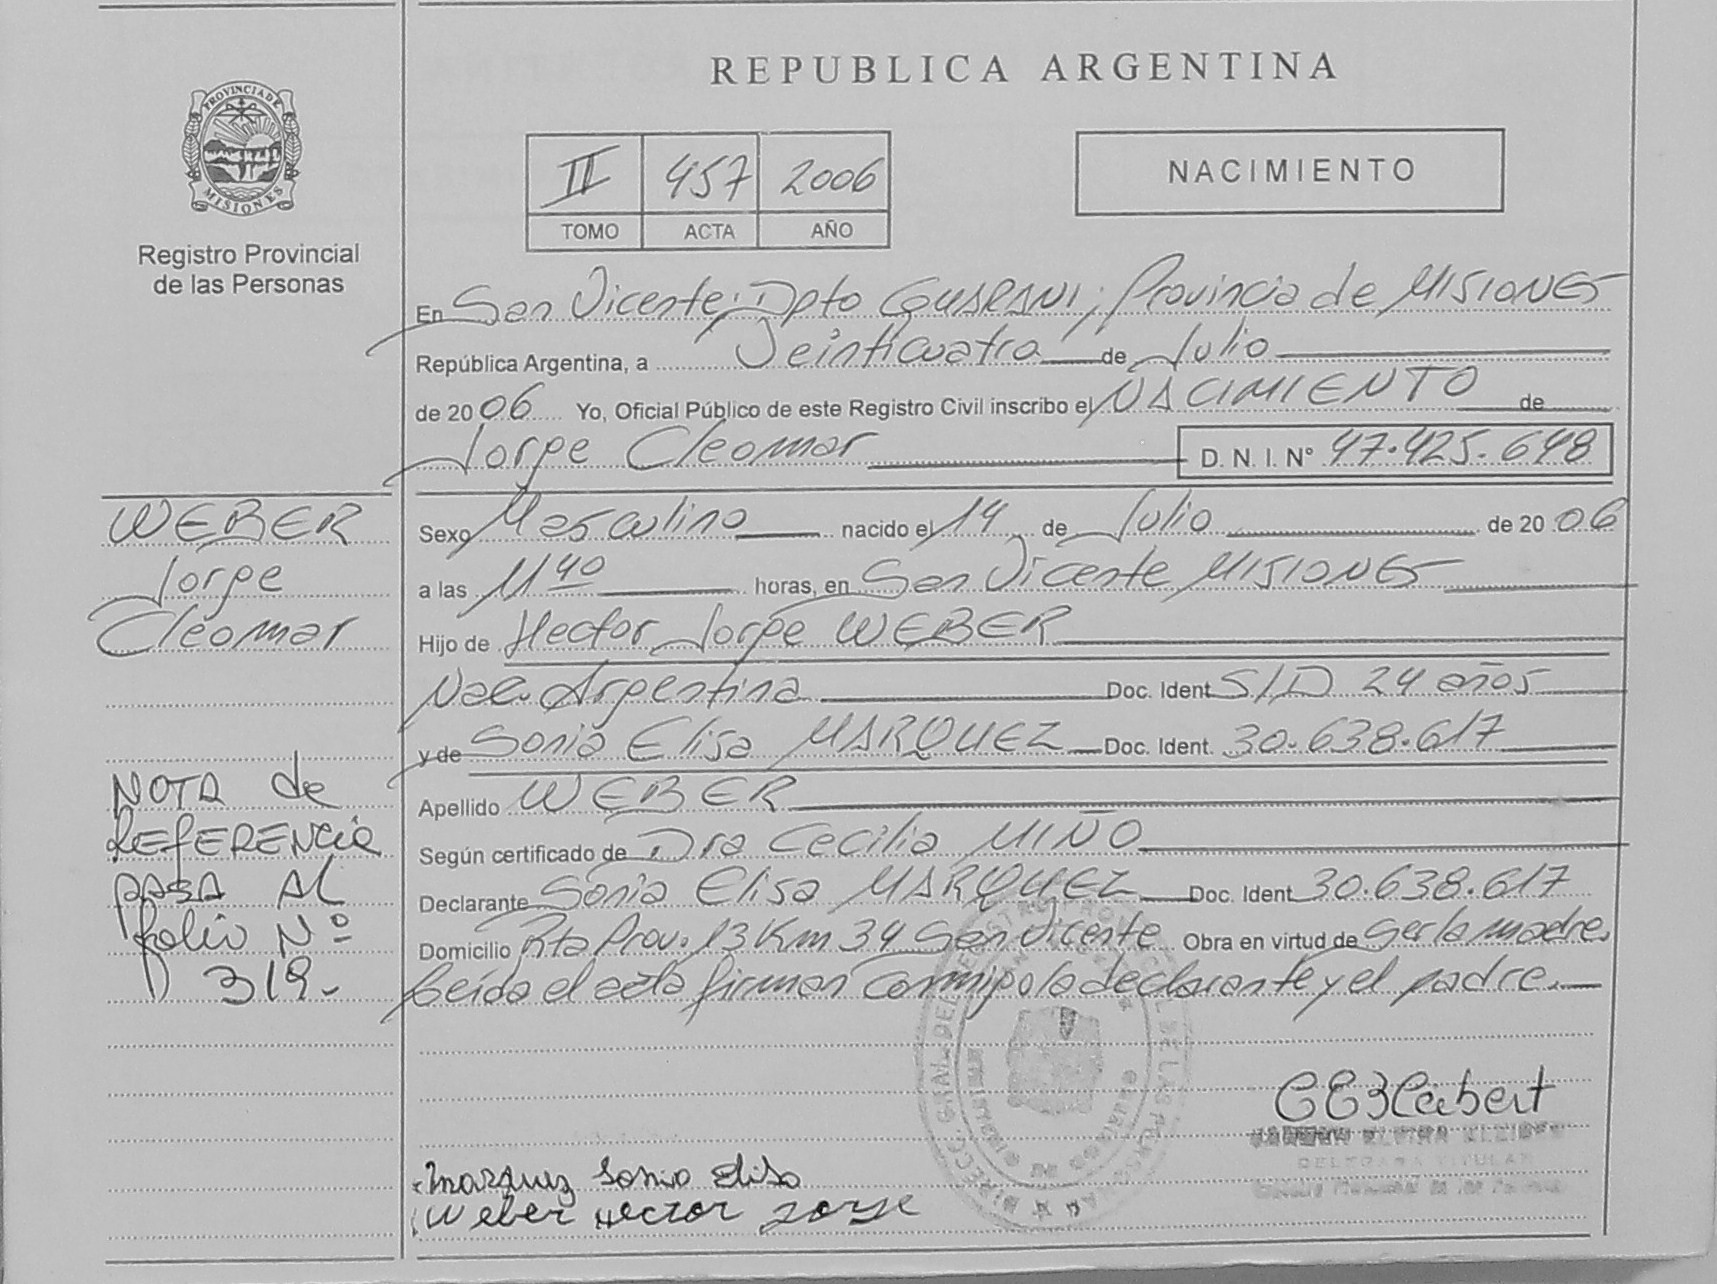 REPUBLICA ARGENTINA
PROVINCIA DE MISIONES
Registro Provincial
de las Personas
II 457 2006
TOMO ACTA AÑO
NACIMIENTO
En San Vicente; Dpto GUARANI; Provincia de MISIONES
República Argentina, a Veinticuatro de Julio
de 2006 Yo, Oficial Público de este Registro Civil inscribo el NACIMIENTO de
Jorge Cleomar D. N. I. Nº 47.425.648
WEBER
Jorge
Cleomar
Sexo Masculino nacido el 14 de Julio de 2006
a las 11 40 horas, en San Vicente MISIONES
Hijo de Hector Jorge WEBER
Nac. Argentina Doc. Ident S/D 24 años
y de Sonia Elisa MARQUEZ Doc. Ident. 30.638.617
Apellido WEBER
Según certificado de Dra Cecilia MIÑO
Declarante Sonia Elisa MARQUEZ Doc. Ident 30.638.617
Domicilio Rta Prov. 13 Km 34 San Vicente Obra en virtud de ser la madre.
Leída el acta firman conmigo la declarante y el padre.
NOTA de
REFERENCIA
PASA AL
folio Nº
319.
Marquez Sonia Elisa
Weber Hector Jorge
DELEGADA TITULAR